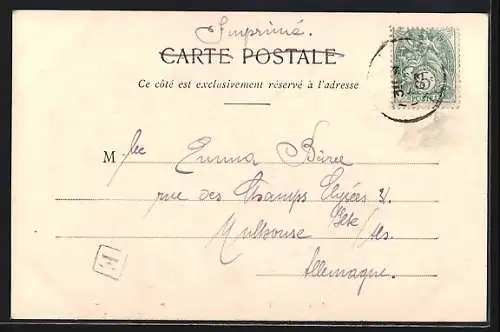 Imprimé.
CARTE POSTALE
Ce côté est exclusivement réservé à l'adresse
5
M lle Emma
rue des Champs Elysées 31.
Mulhouse / Als.
Allemagne.
E